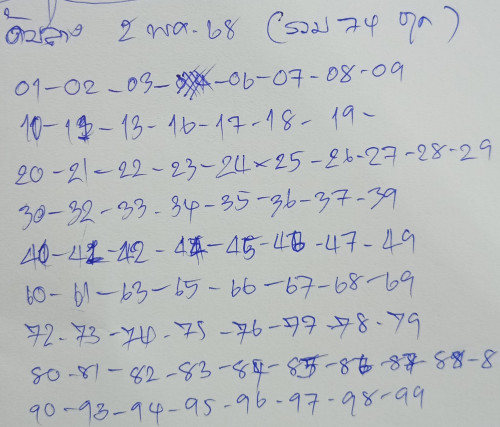 2 พ.ค. 68 (รวม 74 ชุด)
01-02-03-06-07-08-09
10-12-13-16-17-18-19-
20-21-22-23-24-25-26-27-28-29
30-32-33-34-35-36-37-39
40-41-42-44-45-46-47-49
60-61-63-65-66-67-68-69
72-73-74-75-76-77-78-79
80-81-82-83-84-85-86-87-88-8
90-93-94-95-96-97-98-99